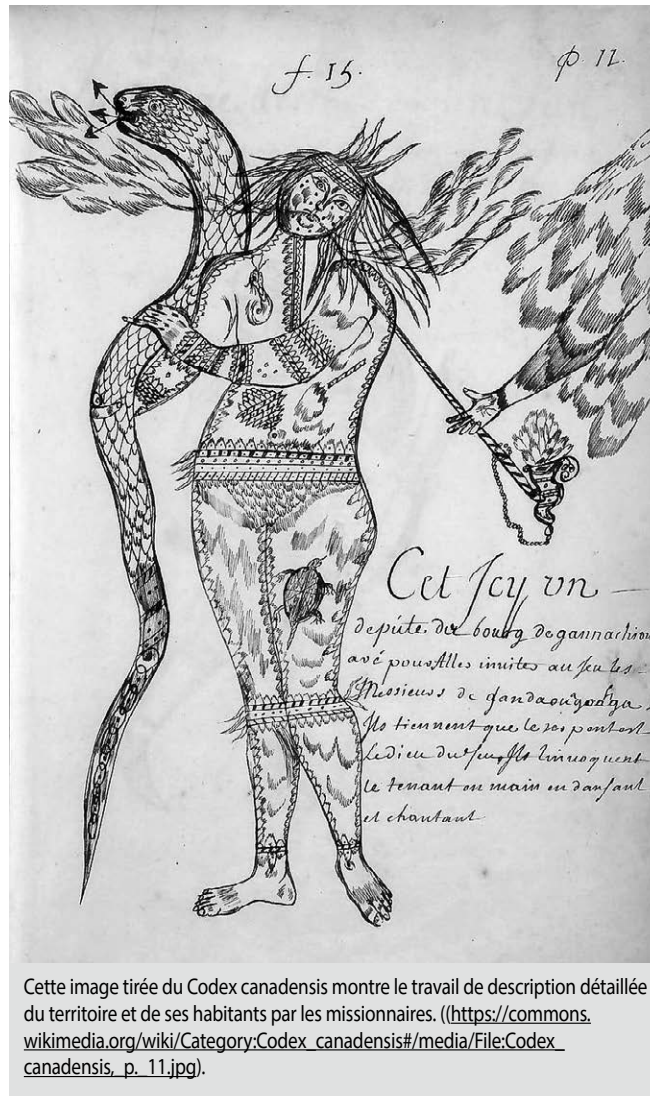 f. 15.
p. 12.
Cet Icy un
deputé du bourg de gannachiou
avé pour Aller invites au jeu les
Messieurs de gandaouagoahga.
Ils tiennent que le serpent est
Le dieu du feu Ils L'invoquent
Le tenant en main en dansant
et chantant
Cette image tirée du Codex canadensis montre le travail de description détaillée
du territoire et de ses habitants par les missionnaires. ((https://commons.
wikimedia.org/wiki/Category:Codex_canadensis#/media/File:Codex_
canadensis,_p._11.jpg).